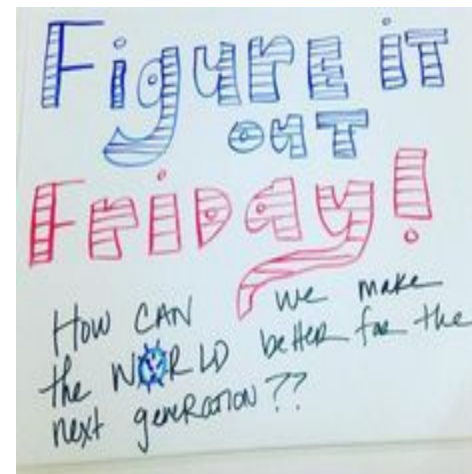 Figure it
out
Friday!
How CAN we make
the WORLD better for the
next generation??